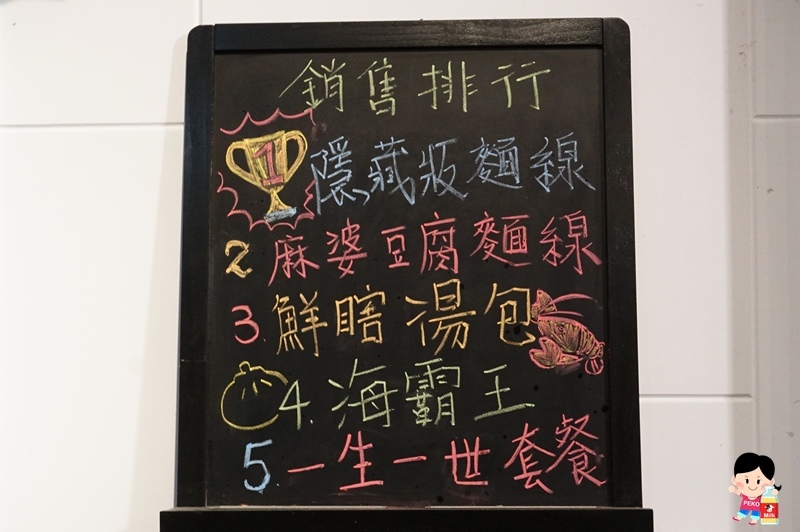 銷售排行
1 隱藏版麵線
2 麻婆豆腐麵線
3. 鮮瞎湯包
4. 海霸王
5. 一生一世套餐
PEKO
Milk